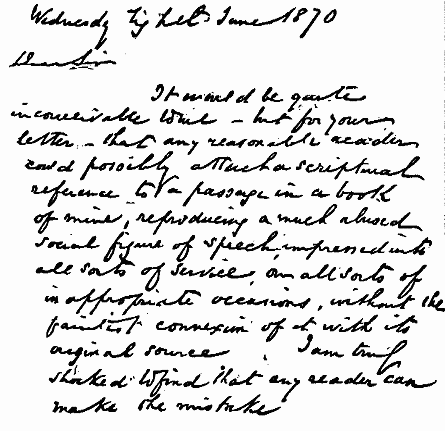 Wednesday Eighth June 1870
Dear Sir
It would be quite
inconceivable to me - but for your
letter - that any reasonable reader
could possibly attach a scriptural
reference to a passage in a book
of mine, reproducing a much abused
social figure of speech, impressed into
all sorts of service, on all sorts of
inappropriate occasions, without the
faintest connexion of it with its
original source. I am truly
shocked to find that any reader can
make the mistake